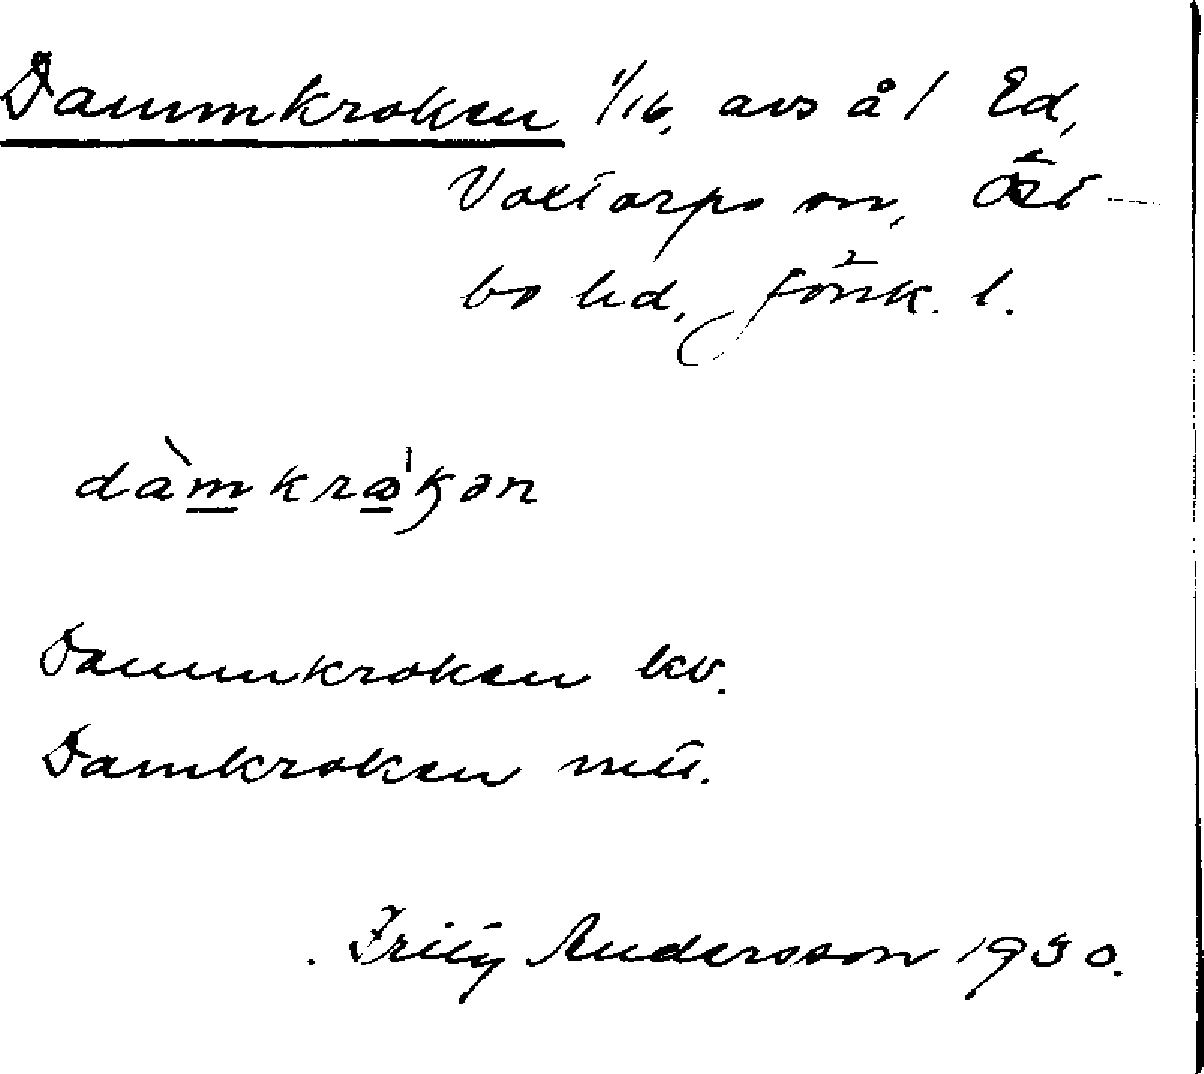 Dammkroken 1/16, avs å 1 Ed,
Voxtorps sn, Öst-
bo hd, Jönk. l.
dàmkrokən
Dammkroken kv.
Damkroken mtl.
Fritz Andersson 1930.